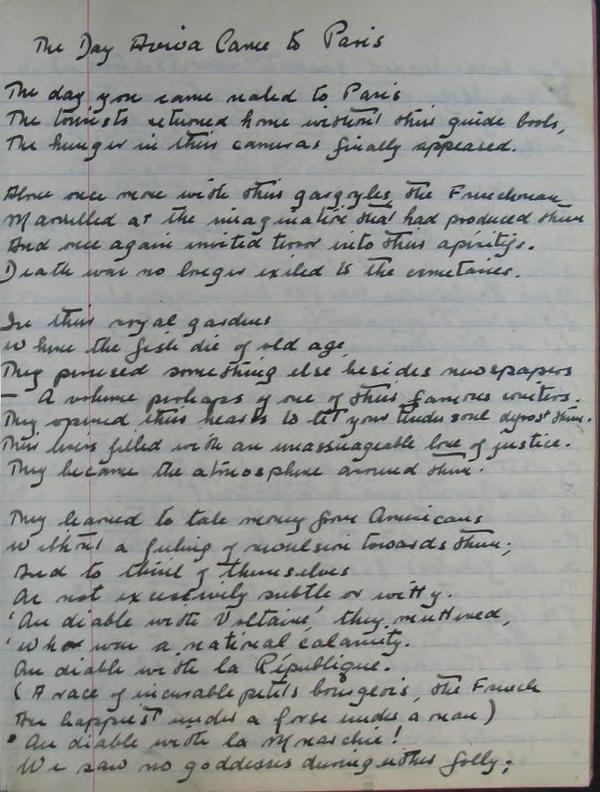 The Day Aviva Came to Paris
The day you came naked to Paris
The tourists returned home without their guide books,
The hunger in their cameras finally appeased.
Alone once more with their gargoyles, the Frenchmen
Marvelled at the imagination that had produced them
And once again invited terror into their apéritifs.
Death was no longer exiled to the cemeteries.
In their royal gardens
where the fish die of old age,
They perused something else besides newspapers
- A volume perhaps of one of their famous writers.
They opened their hearts to let your tender soul them.
Their lives filled with an unassuageable love of justice.
They became the atmosphere around them.
They learned to take money from Americans
Without a feeling of revulsion towards them;
And to think of themselves
As not excessively subtle or witty.
'Au diable with Voltaire,' they muttered,
'Who was a national calamity.
Au diable with la République.
(A race of incurable petits bourgeois, the French
Are happiest under a horse under a man)
' Au diable with la Monarchie!
We saw no goddesses during either folly;